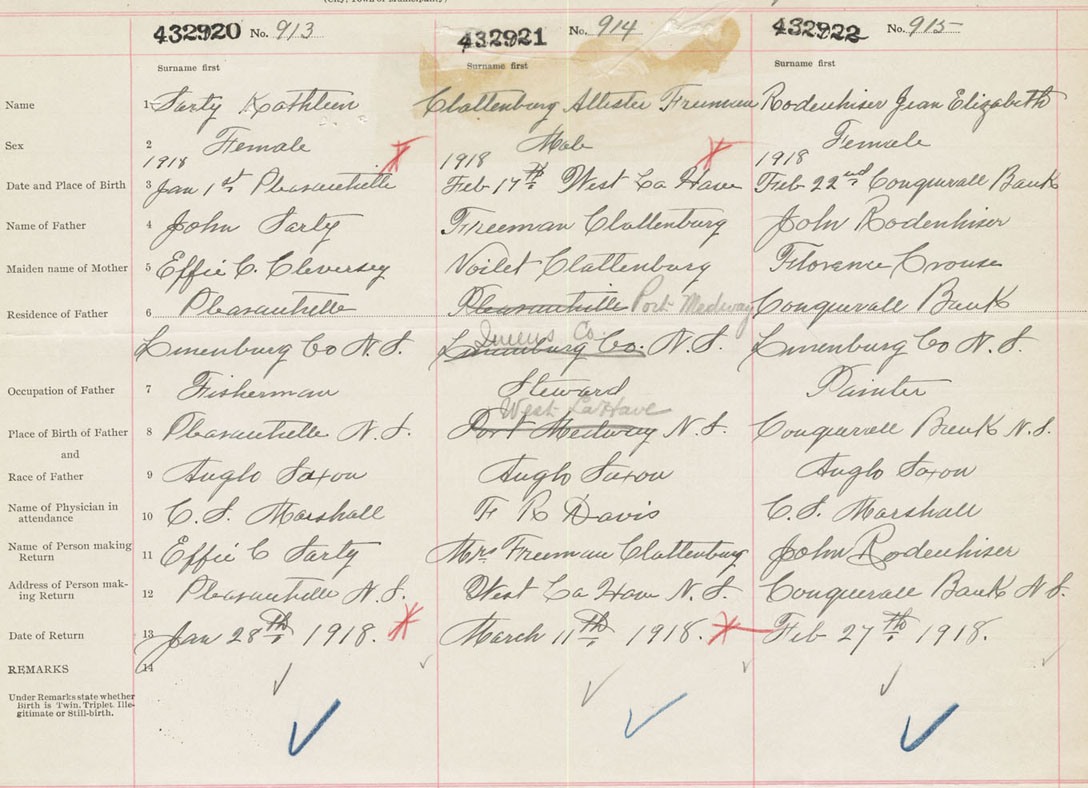 (City, Town or Municipality)
432920 No. 913 432921 No. 914 432922 No. 915
Surname first Surname first Surname first
Name 1 Sarty Kathleen Clattenburg Allister Freeman Rodenhiser Jean Elizabeth
Sex 2 Female Male Female
1918 1918 1918
Date and Place of Birth 3 Jan 1st Pleasantville Feb 17th West La Have Feb 22nd Conquerall Bank
Name of Father 4 John Sarty Freeman Clattenburg John Rodenhiser
Maiden name of Mother 5 Effie C. Cleversey Voilet Clattenburg Florence Crouse
Residence of Father 6 Pleasantville Pleasantville Port Medway Conquerall Bank
Queens Co.
Lunenburg Co N.S. Lunenburg Co. N.S. Lunenburg Co N.S.
Occupation of Father 7 Fisherman Steward Painter
West LaHave
Place of Birth of Father 8 Pleasantville N.S. Port Medway N.S. Conquerall Bank N.S.
and
Race of Father 9 Anglo Saxon Anglo Saxon Anglo Saxon
Name of Physician in
attendance 10 C.S. Marshall F R Davis C.S. Marshall
Name of Person making
Return 11 Effie C Sarty Mrs Freeman Clattenburg John Rodenhiser
Address of Person mak-
ing Return 12 Pleasantville N.S. West La Have N.S. Conquerall Bank N.S.
Date of Return 13 Jan 28th 1918. March 11th 1918. Feb 27th 1918.
REMARKS 14
Under Remarks state whether
Birth is Twin. Triplet. Ille-
gitimate or Still-birth.